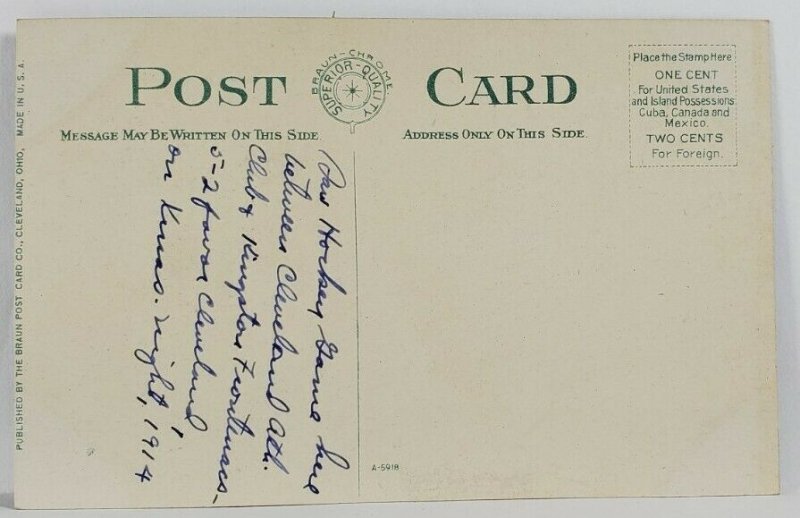 POST CARD
BRAUN-CHROME
SUPERIOR-QUALITY
MESSAGE MAY BE WRITTEN ON THIS SIDE.
ADDRESS ONLY ON THIS SIDE.
Place the Stamp Here
ONE CENT
For United States
and Island Possessions
Cuba, Canada and
Mexico.
TWO CENTS
For Foreign.
Saw Hockey Game here
between Cleveland Ath.
Club & Kingston Frontenacs-
5-2 favor Cleveland
on Xmas. night, 1914
A-5918
PUBLISHED BY THE BRAUN POST CARD CO., CLEVELAND, OHIO, MADE IN U.S.A.